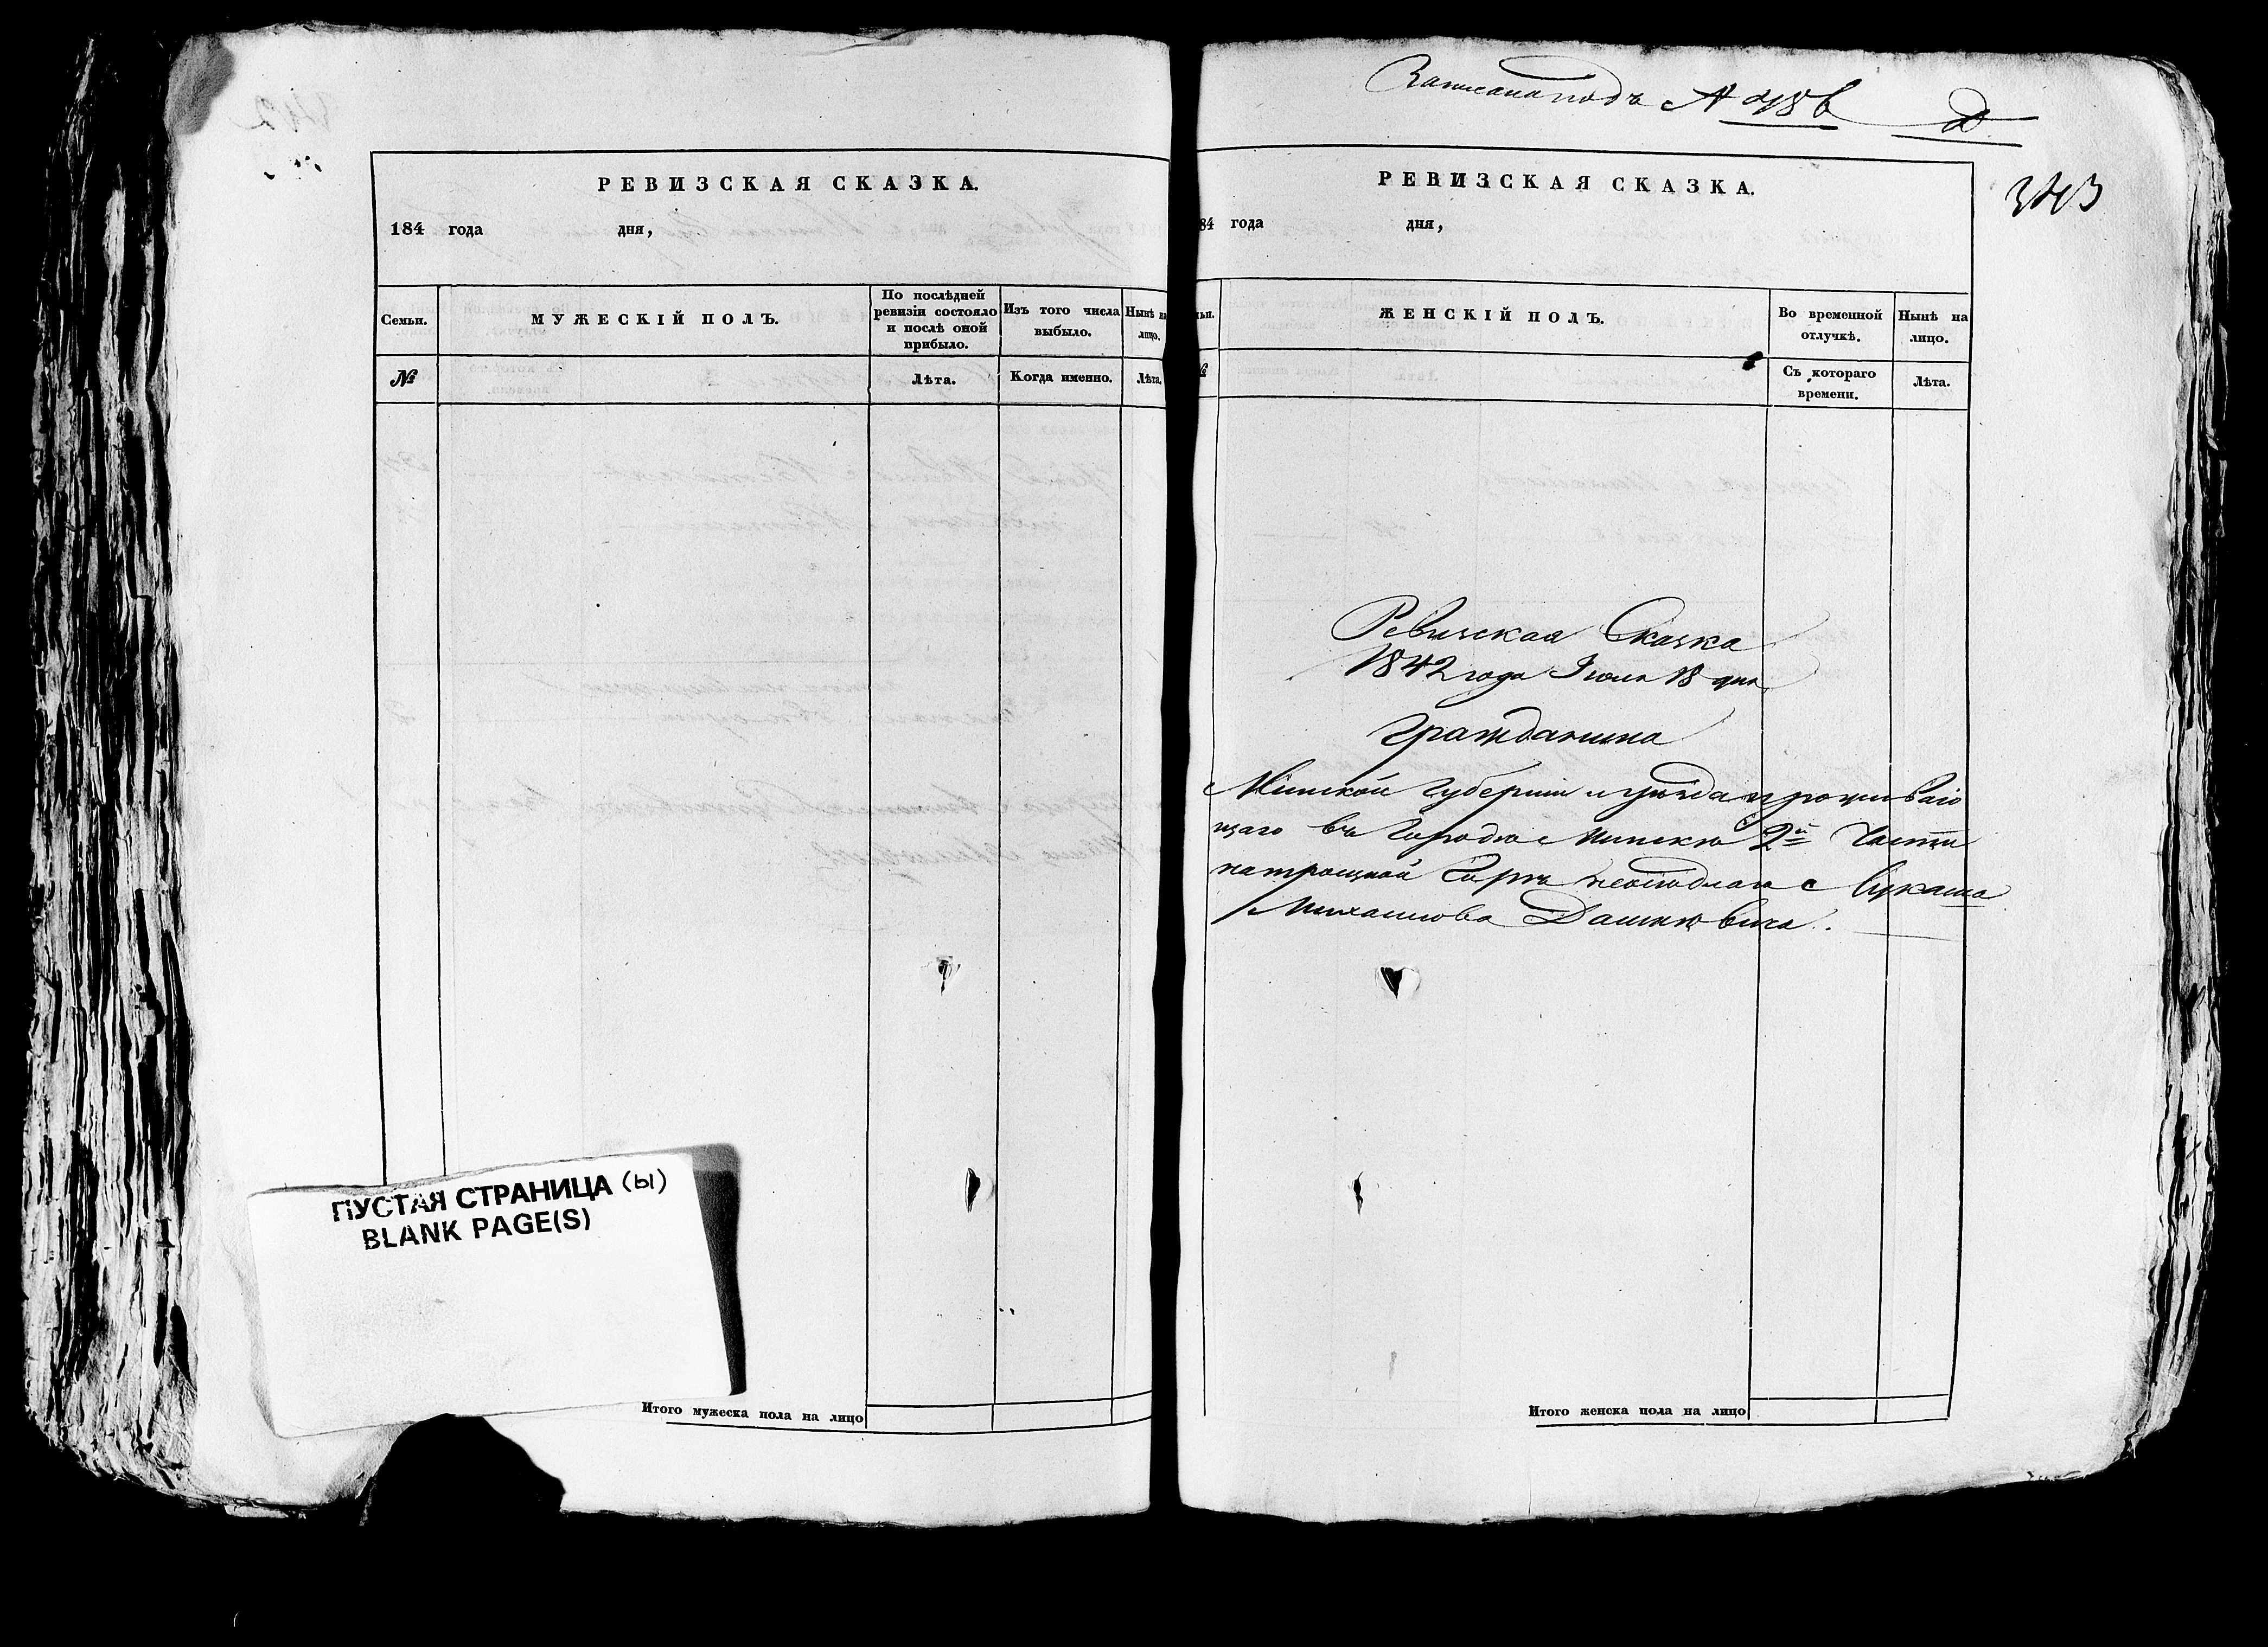 РЕВИЗСКАЯ СКАЗКА.
184 года дня,
Семьи.
МУЖЕСКІЙ ПОЛЪ.
По послѣдней ревизіи состояло и послѣ оной прибыло.
Изъ того числа выбыло.
Нынѣ на лицо.
№
Лѣта.
Когда именно.
Лѣта.
ПУСТАЯ СТРАНИЦА (ы)
BLANK PAGE(S)
Итого мужеска пола на лицо
Записана подъ №
343
РЕВИЗСКАЯ СКАЗКА.
84 года дня,
ьи.
ЖЕНСКІЙ ПОЛЪ.
Во временной отлучкѣ.
Нынѣ на лицо.
№
Съ котораго времени.
Лѣта.
Ревизская Сказка
1842 года Іюля 18 дня
Гражданина
Минской Губерніи и уѣзда проживаю
щаго въ Городѣ Минскѣ 2й Части
на троицкой Горѣ Лукаша
Михаилова Дашкевича.
Итого женска пола на лицо